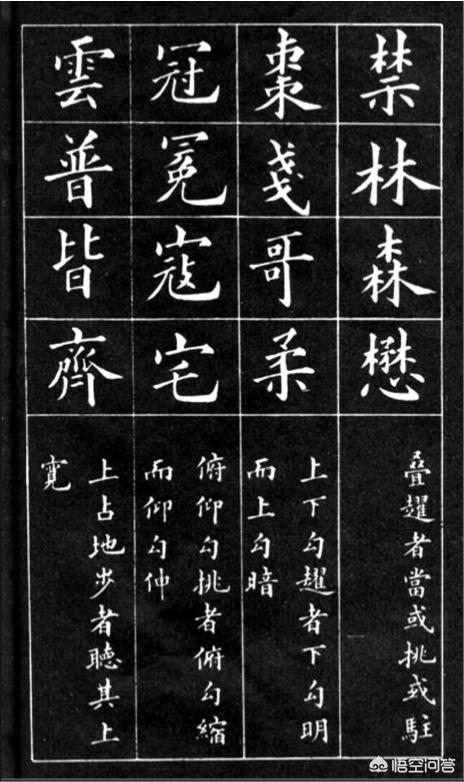 禁林森懋
叠趯者當或挑或駐
棗戔哥柔
上下勾趯者下勾明
而上勾暗
冠冕寇宅
俯仰勾挑者俯勾縮
而仰勾伸
雲普皆齊
上占地步者聽其上
寬
悟空问答